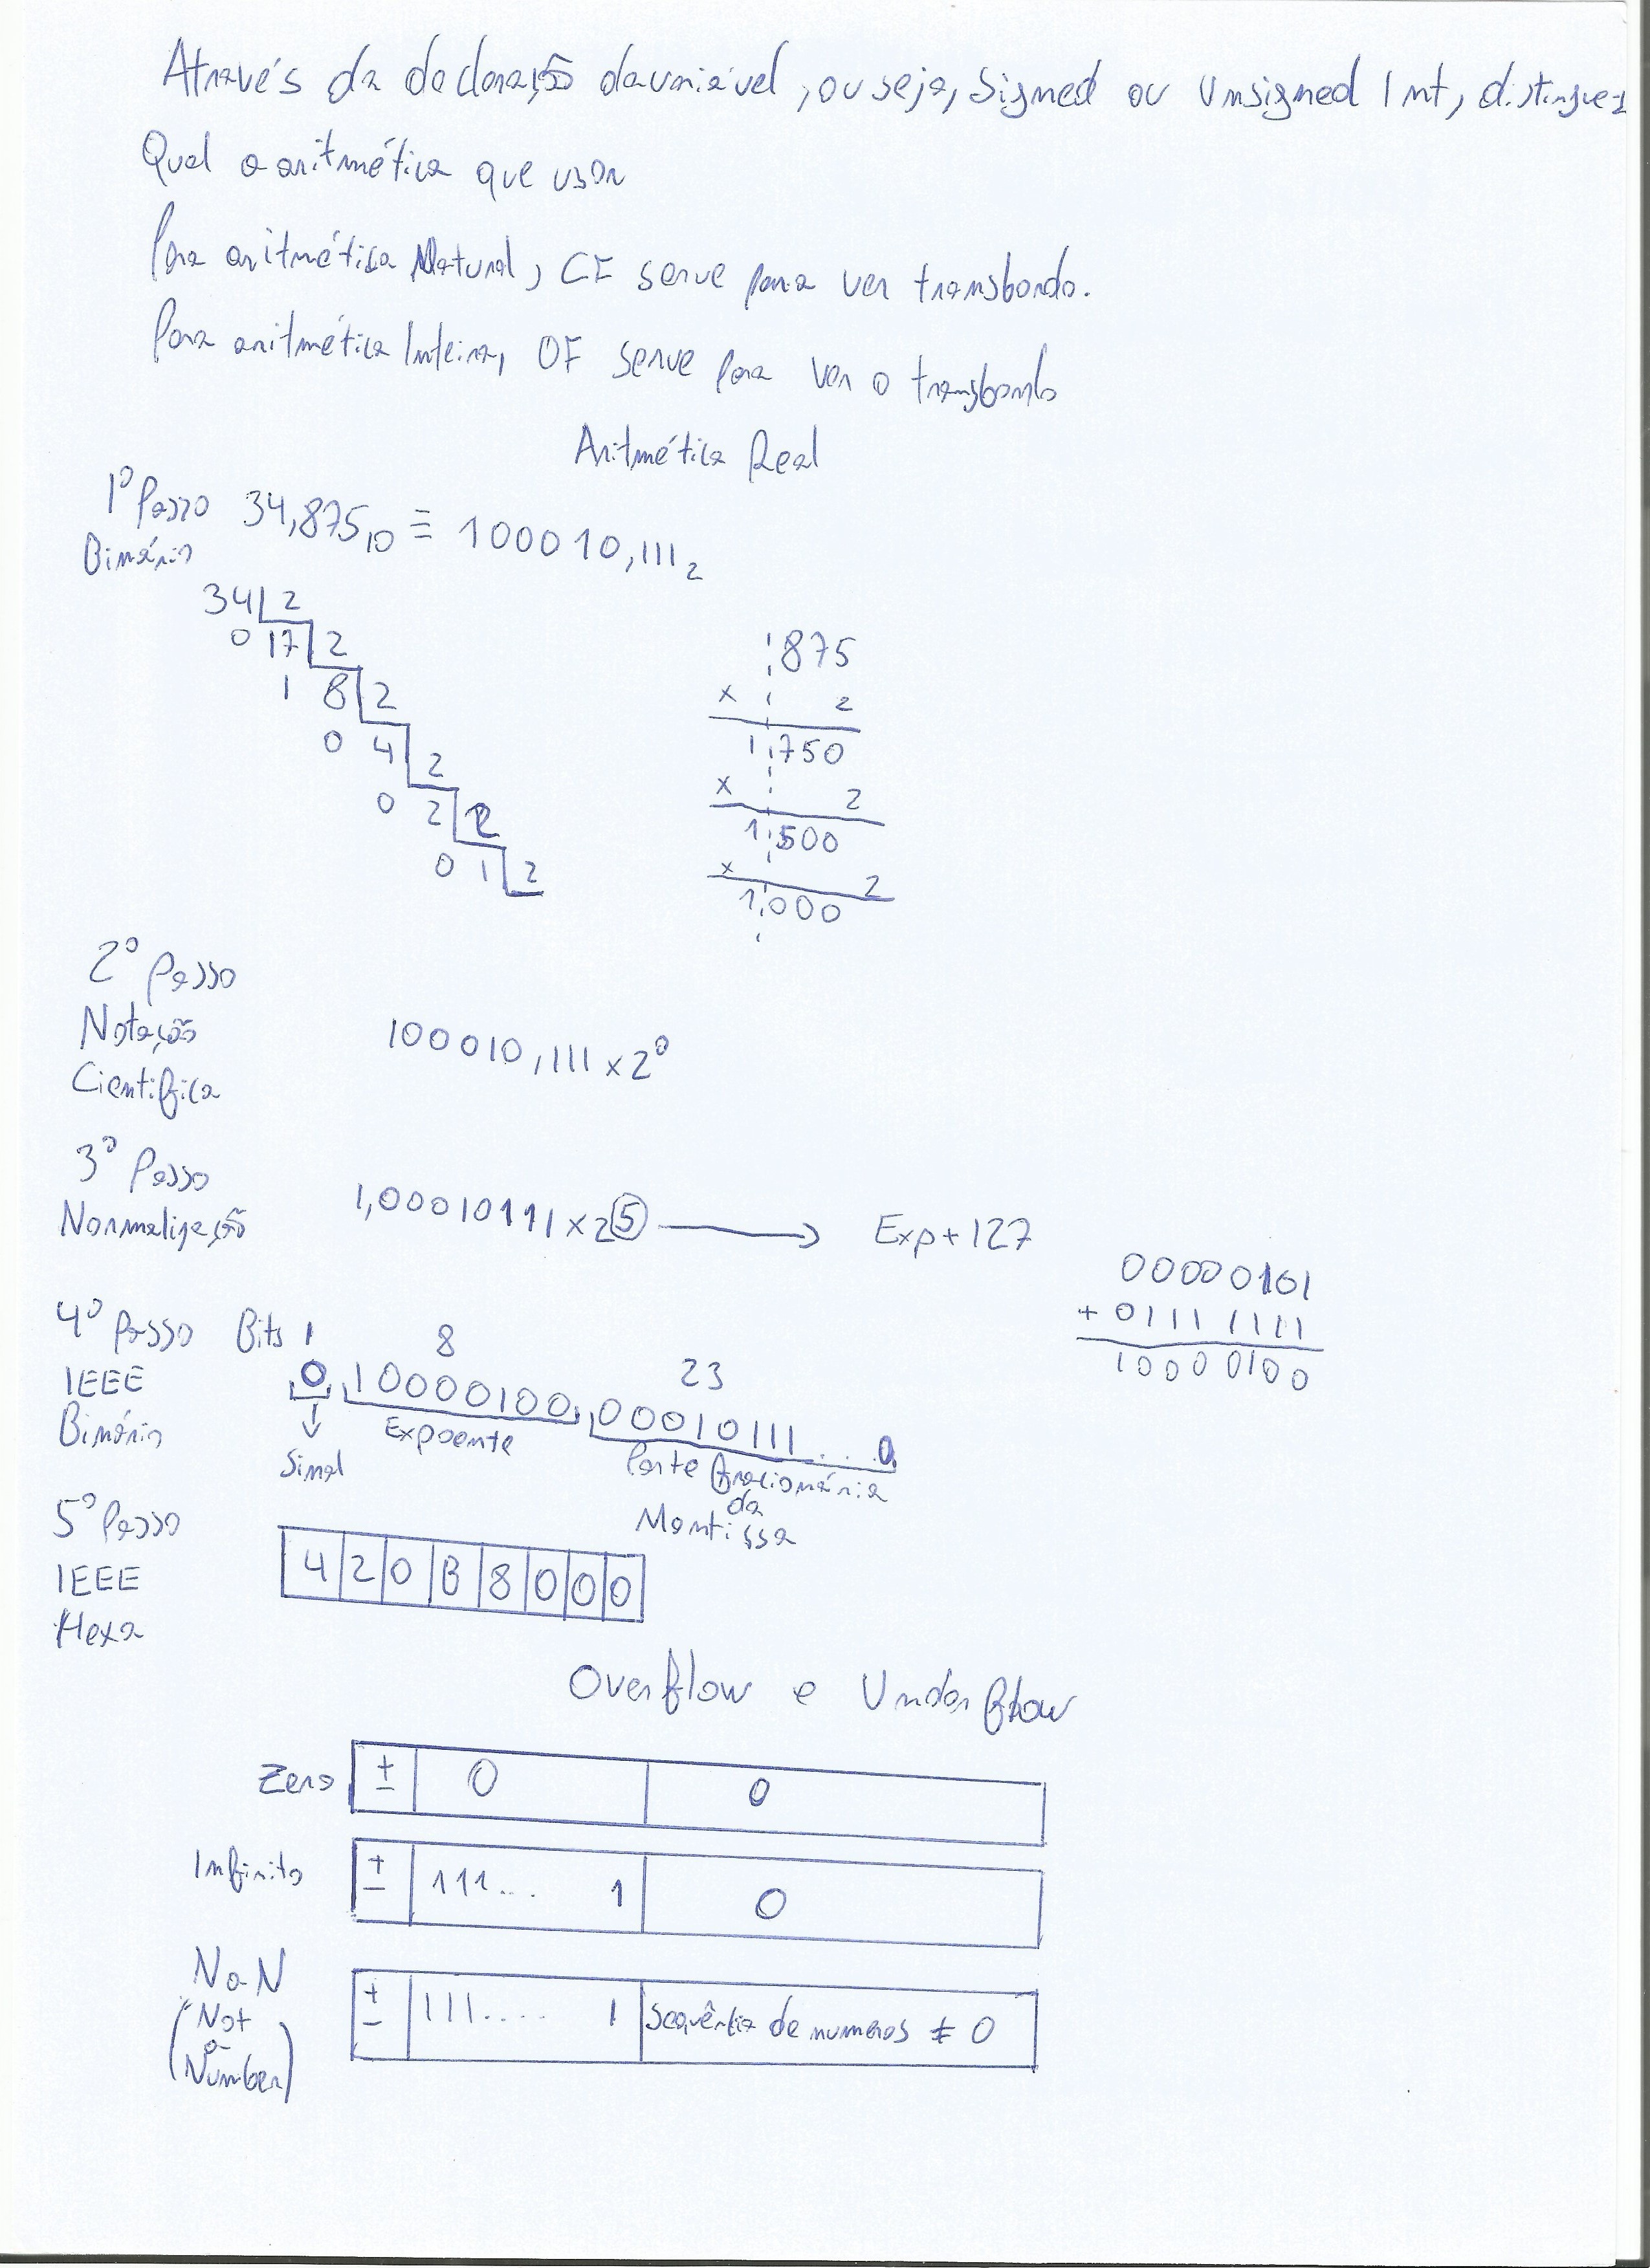 Através da declaração da variável, ou seja, Signed ou Unsigned Int, distingue-s
Qual a aritmética que usar
Para aritmética Natural, CF serve para ver transbordo.
Para aritmética Inteira, OF serve para ver o transbordo
Aritmética Real
1º Passo 34,875₁₀ ≡ 100010,111₂
Binário
34 2
0 17 2
1 8 2
0 4 2
0 2 2
0 1 2
,875
x 2
1,750
x 2
1,500
x 2
1,000
2º Passo
Notação
Científica
100010,111 x 2⁰
3º Passo
Normalização
1,00010111 x 2⁵ → Exp + 127
00000101
+ 01111111
10000100
4º Passo Bits 1 8 23
IEEE
Binário
0 10000100 00010111...0
Sinal Expoente Parte fracionária
da
Mantissa
5º Passo
IEEE
Hexa
4 2 0 B 8 0 0 0
Overflow e Underflow
Zero ± 0 0
Infinito ± 111... 1 0
NaN ± 111.... 1 Sequência de numeros ≠ 0
(Not
a
Number)